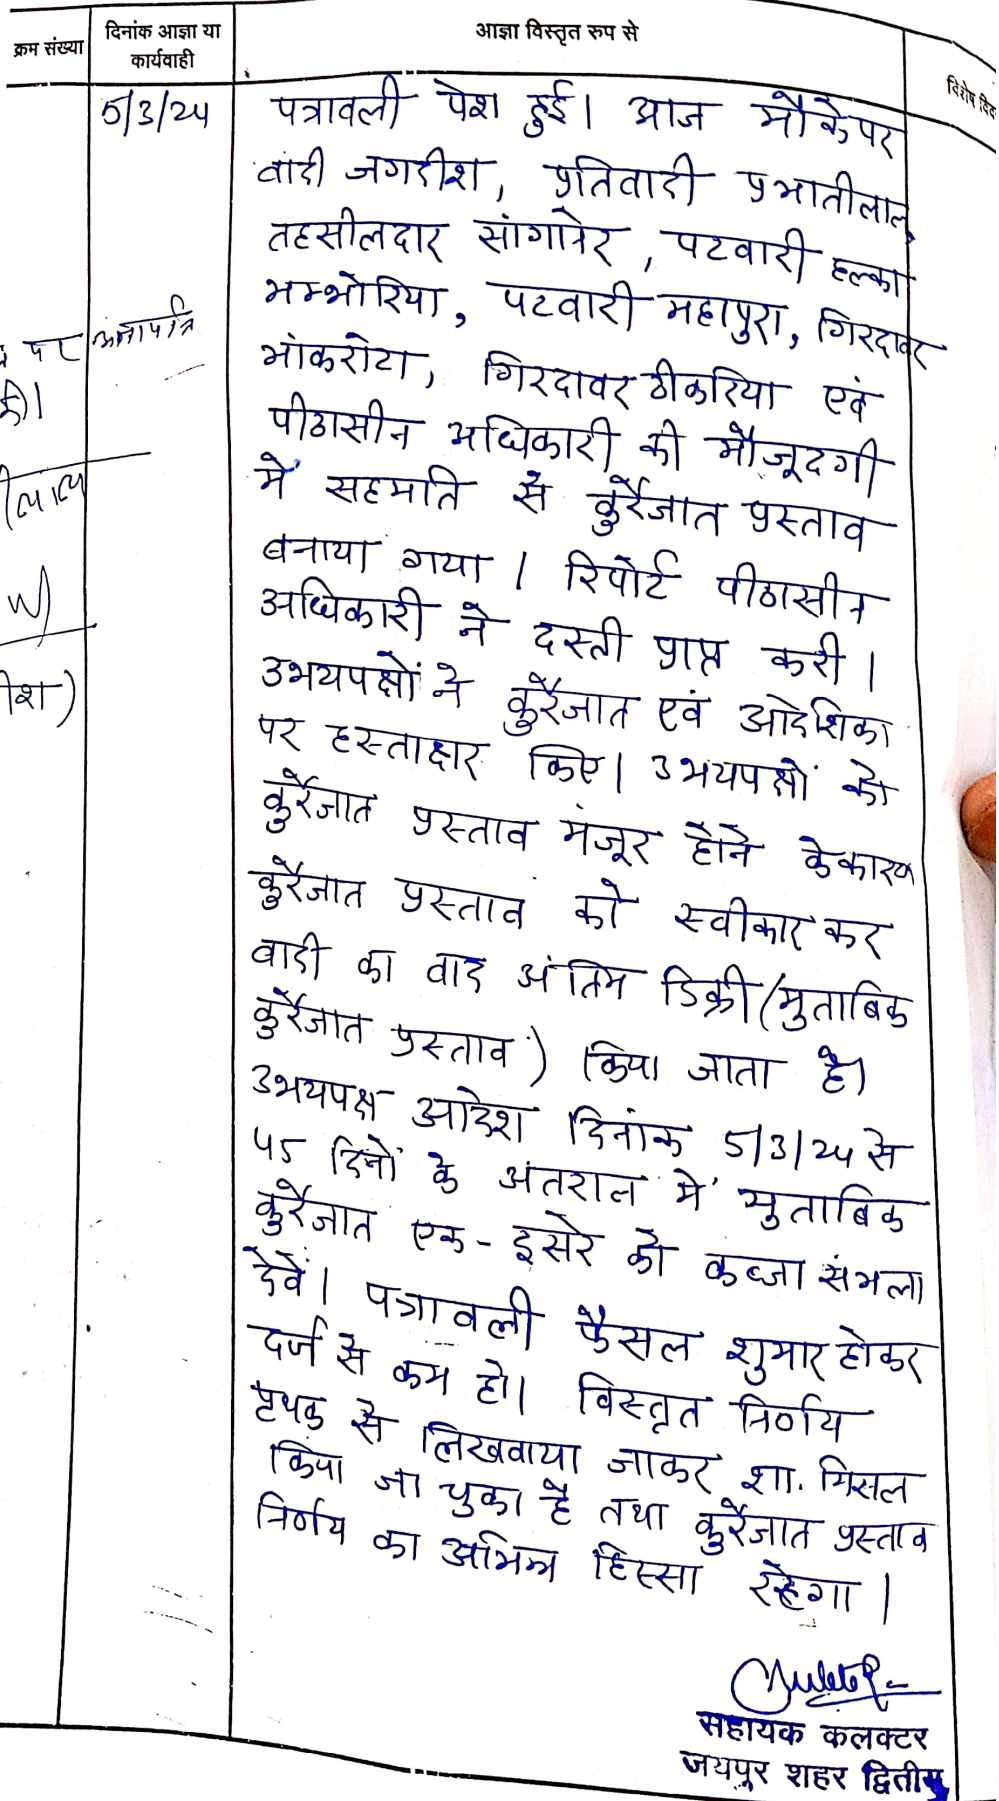 क्रम संख्या
दिनांक आज्ञा या
कार्यवाही
आज्ञा विस्तृत रुप से
विशेष
5/3/24
पत्रावली पेश हुई। आज मौके पर
वादी जगदीश, प्रतिवादी प्रभातीलाल,
तहसीलदार सांगानेर, पटवारी हल्का
भम्भोरिया, पटवारी महापुरा, गिरदावर
भांकरोटा, गिरदावर ठीकरिया एवं
पीठासीन अधिकारी की मौजूदगी
में सहमति से कुर्रेजात प्रस्ताव
बनाया गया। रिपोर्ट पीठासीन
अधिकारी ने दस्ती प्राप्त करी।
उभयपक्षों ने कुर्रेजात एवं आदेशिका
पर हस्ताक्षर किए। उभयपक्षों को
कुर्रेजात प्रस्ताव मंजूर होने के कारण
कुर्रेजात प्रस्ताव को स्वीकार कर
वादी का वाद अंतिम डिक्री (मुताबिक
कुर्रेजात प्रस्ताव) किया जाता है।
उभयपक्ष आदेश दिनांक 5/3/24 से
45 दिनों के अंतराल में मुताबिक
कुर्रेजात एक-दूसरे को कब्जा संभला
देवें। पत्रावली फैसल शुमार होकर
दर्ज से कम हो। विस्तृत निर्णय
पृथक से लिखवाया जाकर शा. मिसल
किया जा चुका है तथा कुर्रेजात प्रस्ताव
निर्णय का अभिन्न हिस्सा रहेगा।
सहायक कलक्टर
जयपुर शहर द्वितीय